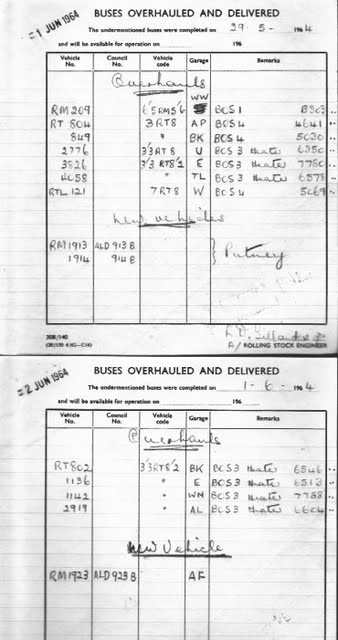 1 JUN 1964
BUSES OVERHAULED AND DELIVERED
The undermentioned buses were completed on 29-5- 1964
and will be available for operation on 196
Vehicle No. Council No. Vehicle code Garage Remarks
Overhauls
WW
RM 209 6'5RM5'6 BCS 1
RT 804 3RT8 AP BCS 4 4641 "
849 " BK BCS 4 5030 "
2776 3'3RT8 U BCS 3 Heater 6350 "
3826 3'3RT8'2 E BCS 3 Heater 7780 "
4058 " TL BCS 3 Heater 6578 "
RTL 121 7RT8 W BCS 4 5069 "
New vehicles
RM 1913 ALD 913 B } Putney
1914 914 B
308/140
A/ ROLLING STOCK ENGINEER
2 JUN 1964
BUSES OVERHAULED AND DELIVERED
The undermentioned buses were completed on 1-6- 1964
and will be available for operation on 196
Vehicle No. Council No. Vehicle code Garage Remarks
Overhauls
RT 802 3'3RT8'2 BK BCS 3 Heater 6546 "
1136 " E BCS 3 Heater 6513 "
1142 " WN BCS 3 Heater 7758 "
2919 " AL BCS 3 Heater 6604 "
New Vehicle
RM 1923 ALD 923 B AF